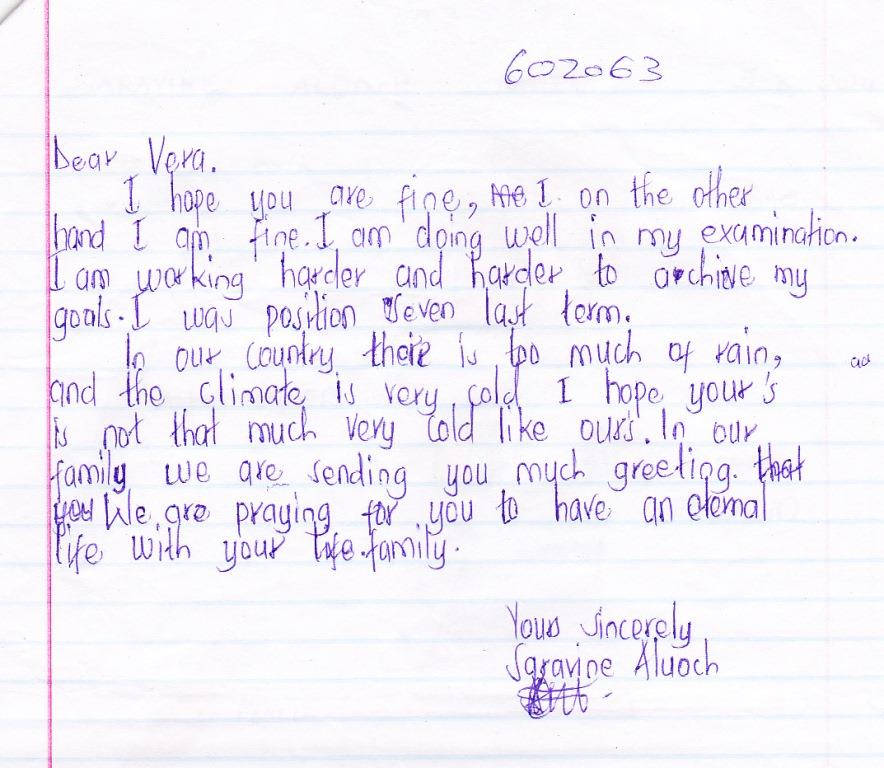 602063
Dear Vera.
I hope you are fine, me I on the other
hand I am fine. I am doing well in my examination.
I am working harder and harder to archive my
goals. I was position seven last term.
In our country there is too much of rain,
and the climate is very cold I hope your's
is not that much very cold like ours. In our
family we are sending you much greeting. that
you We are praying for you to have an eternal
life with your life. family.
Yours sincerely
Aluoch